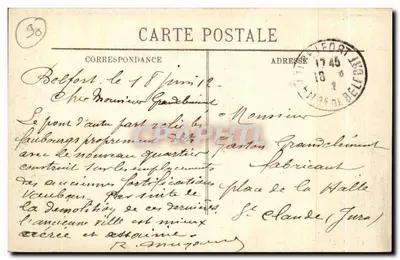 90
CARTE POSTALE
CORRESPONDANCE
ADRESSE
Belfort le 18 juin 12
Cher Monsieur Grandclément
Le pont d'autre part relie les
faubourgs proprement dits
avec le nouveau quartier
construit sur les emplacements
des anciennes fortifications
Vauban. Par suite de
la démolition de ces dernières
l'ancienne ville est mieux
aérée et assainie
R.
BELFORT
17 45
18
Monsieur
Gaston Grandclément
fabricant
place de la Halle
St Claude (Jura)